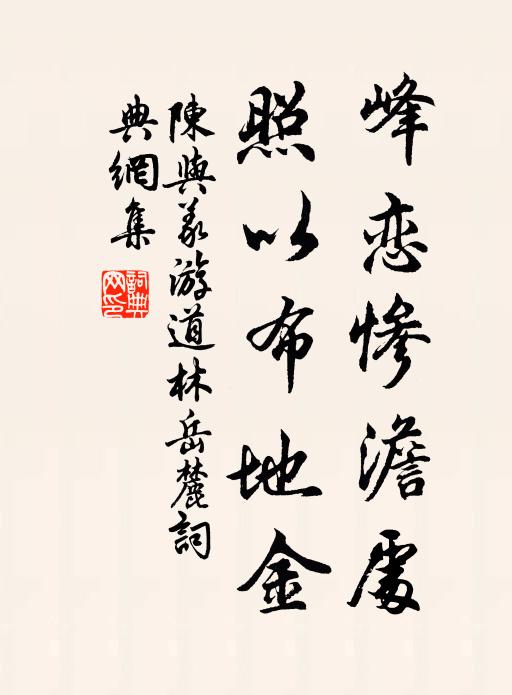 峰恋惨澹處
照以布地金
陳與義游道林岳麓詞
典網集
詞典網印